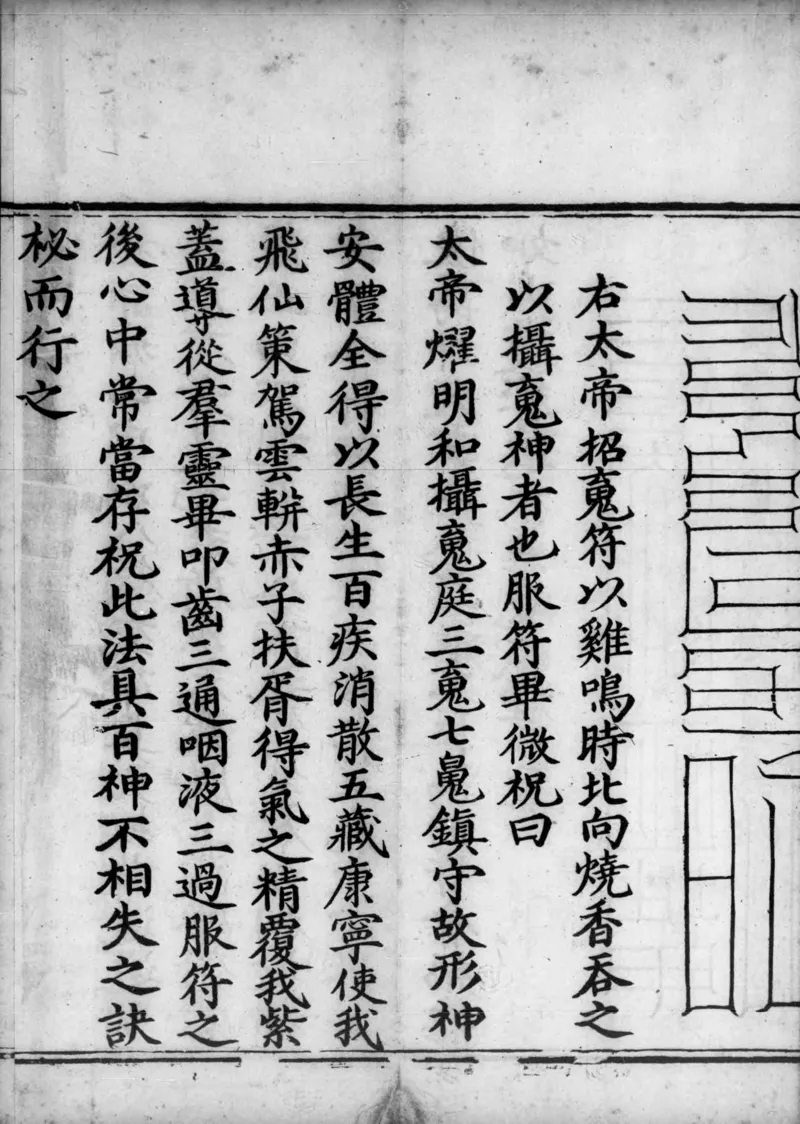 右太帝招䰟符以雞鳴時北向燒香吞之
以攝䰟神者也服符畢微祝曰
太帝燿明和攝䰟庭三䰟七䰠鎮守故形神
安體全得以長生百疾消散五藏康寧使我
飛仙策駕雲軿赤子扶胥得氣之精覆我紫
蓋導從羣靈畢叩齒三通咽液三過服符之
後心中常當存祝此法具百神不相失之訣
祕而行之